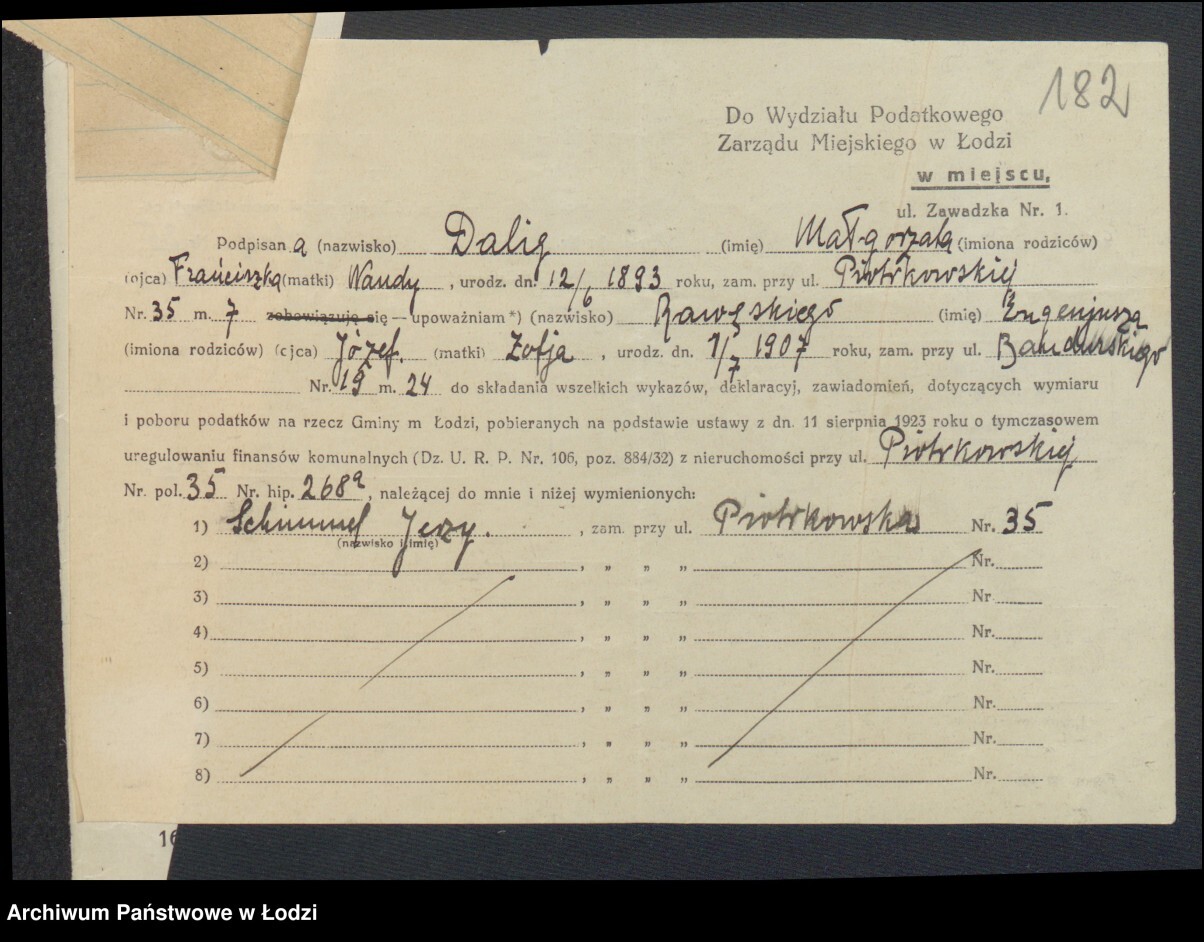 182
Do Wydziału Podatkowego
Zarządu Miejskiego w Łodzi
w miejscu,
ul. Zawadzka Nr. 1.
Podpisan a (nazwisko) Dalig (imię) Małgorzata (imiona rodziców)
(ojca) Franciszka (matki) Wandy, urodz. dn. 12/6 1893 roku, zam. przy ul. Piotrkowskiej
Nr. 35 m. 7 zobowiązuję się — upoważniam *) (nazwisko) Rawęskiego (imię) Eugenjusza
(imiona rodziców) (ojca) Józef. (matki) Zofja, urodz. dn. 1/7 1907 roku, zam. przy ul. Bandurskiego
Nr. 15 m. 24 do składania wszelkich wykazów, deklaracyj, zawiadomień, dotyczących wymiaru
i poboru podatków na rzecz Gminy m Łodzi, pobieranych na podstawie ustawy z dn. 11 sierpnia 1923 roku o tymczasowem
uregulowaniu finansów komunalnych (Dz. U. R. P. Nr. 106, poz. 884/32) z nieruchomości przy ul. Piotrkowskiej
Nr. pol. 35 Nr. hip. 268a, należącej do mnie i niżej wymienionych:
1) Schimmel Jerzy. , zam. przy ul. Piotrkowska Nr. 35
(nazwisko i imię)
2) , „ „ „ Nr.
3) , „ „ „ Nr
4) , „ „ „ Nr.
5) , „ „ „ Nr.
6) , „ „ „ Nr.
7) , „ „ „ Nr.
8) , „ „ „ Nr.
16
Archiwum Państwowe w Łodzi